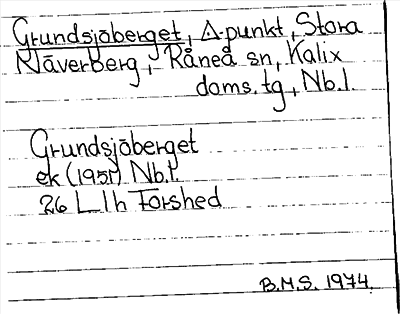 Grundsjöberget, Δ-punkt, Stora
Näverberg, Råneå sn, Kalix
doms. tg., Nb.l.
Grundsjöberget
ek (1951) Nb.l.
26 L lh Forshed
B.M.S. 1974.